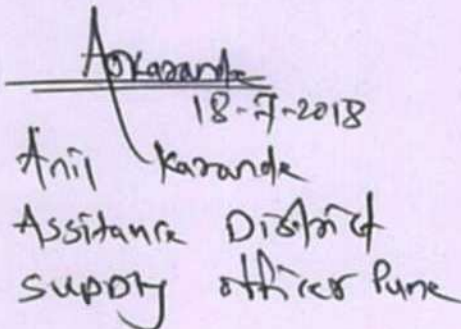 AoKarande
18-7-2018
Anil Karande
Assitance District
supply officer Pune